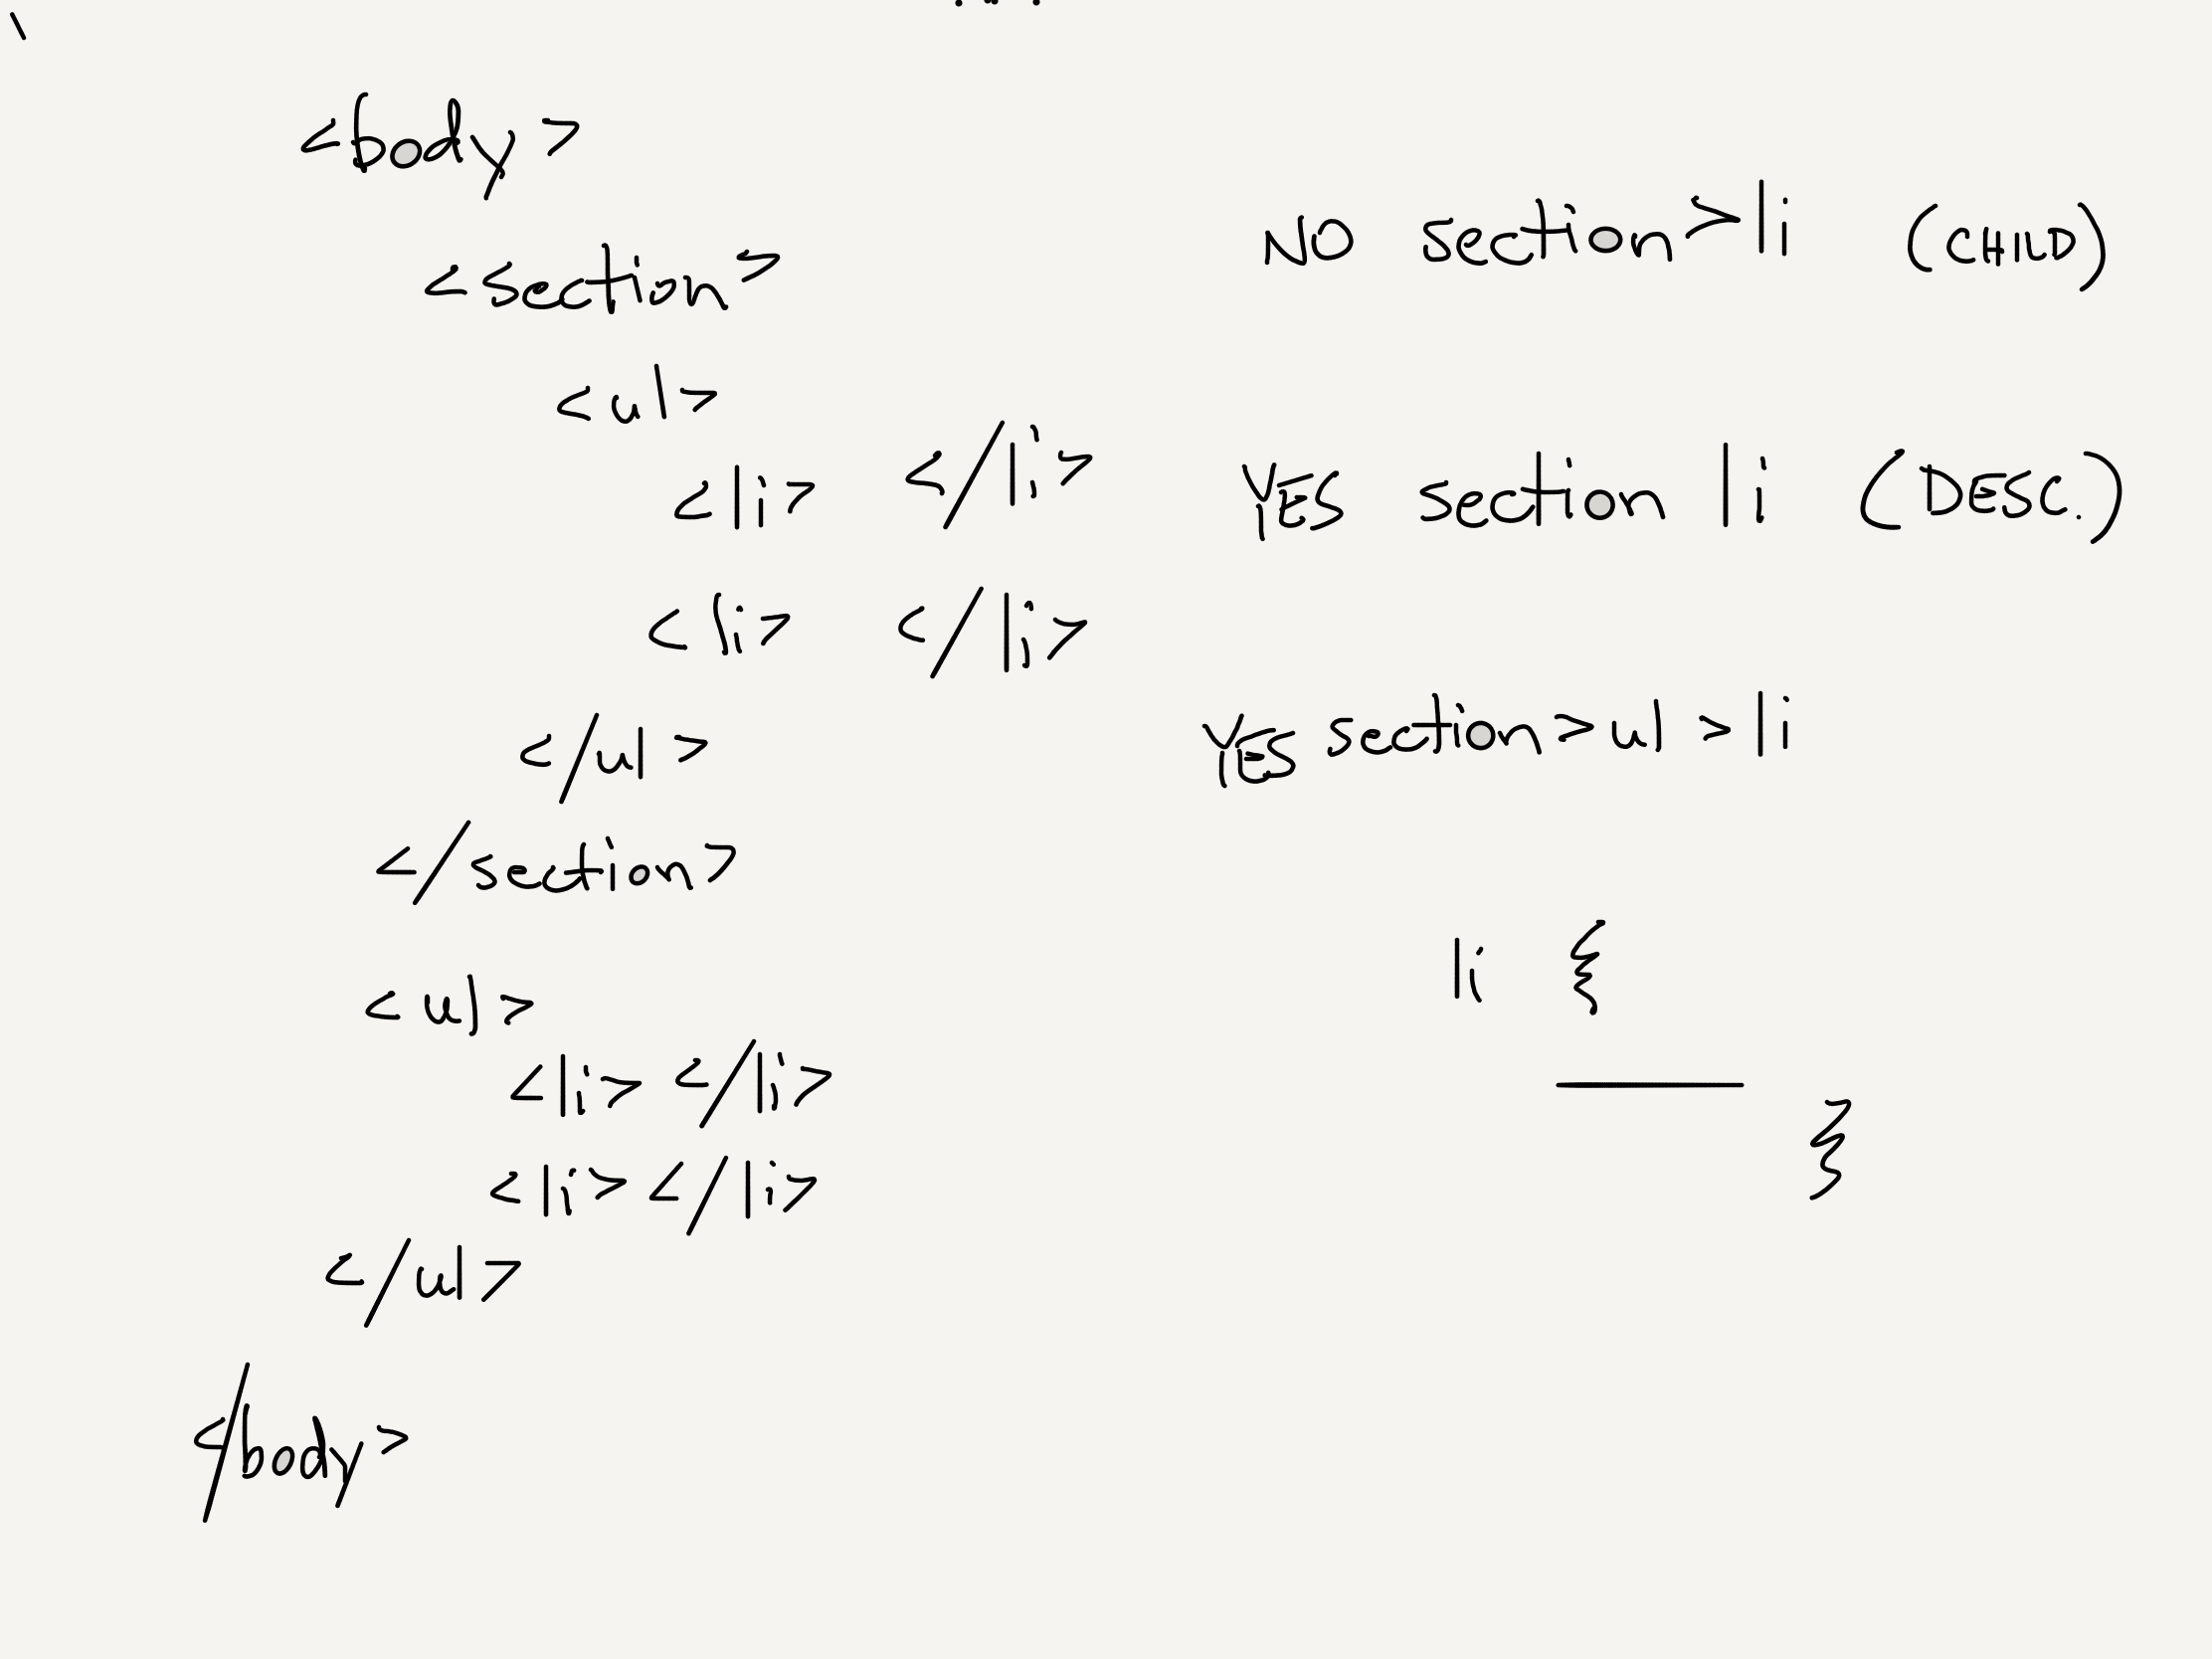 <body>
<section>
<ul>
<li> </li>
<li> </li>
</ul>
</section>
<ul>
<li> </li>
<li> </li>
</ul>
</body>
NO section>li (CHILD)
YES section li (DESC.)
YES section>ul >li
li {
}